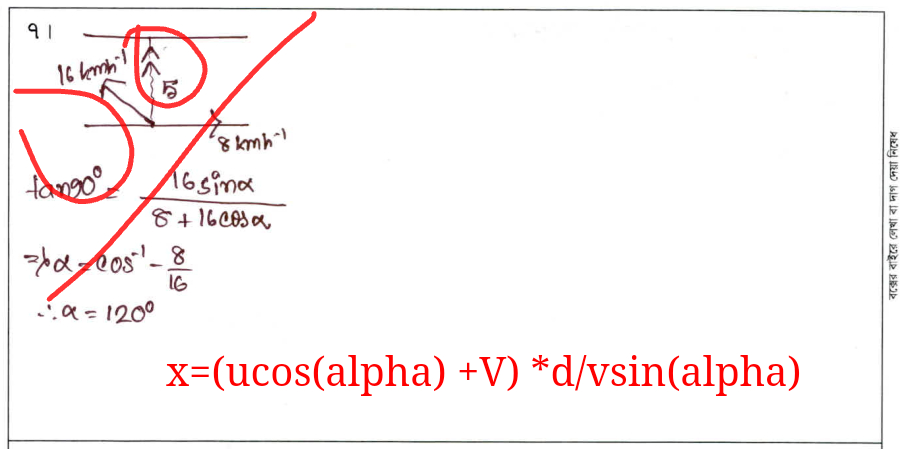 ৭।
16 kmh⁻¹
8 kmh⁻¹
tan90° = 16 sinα / 8 + 16 cosα
⇒ α = cos⁻¹ - 8/16
∴ α = 120°
x=(ucos(alpha) +V) *d/vsin(alpha)
বক্সের বাইরে লেখা বা দাগ দেয়া নিষেধ